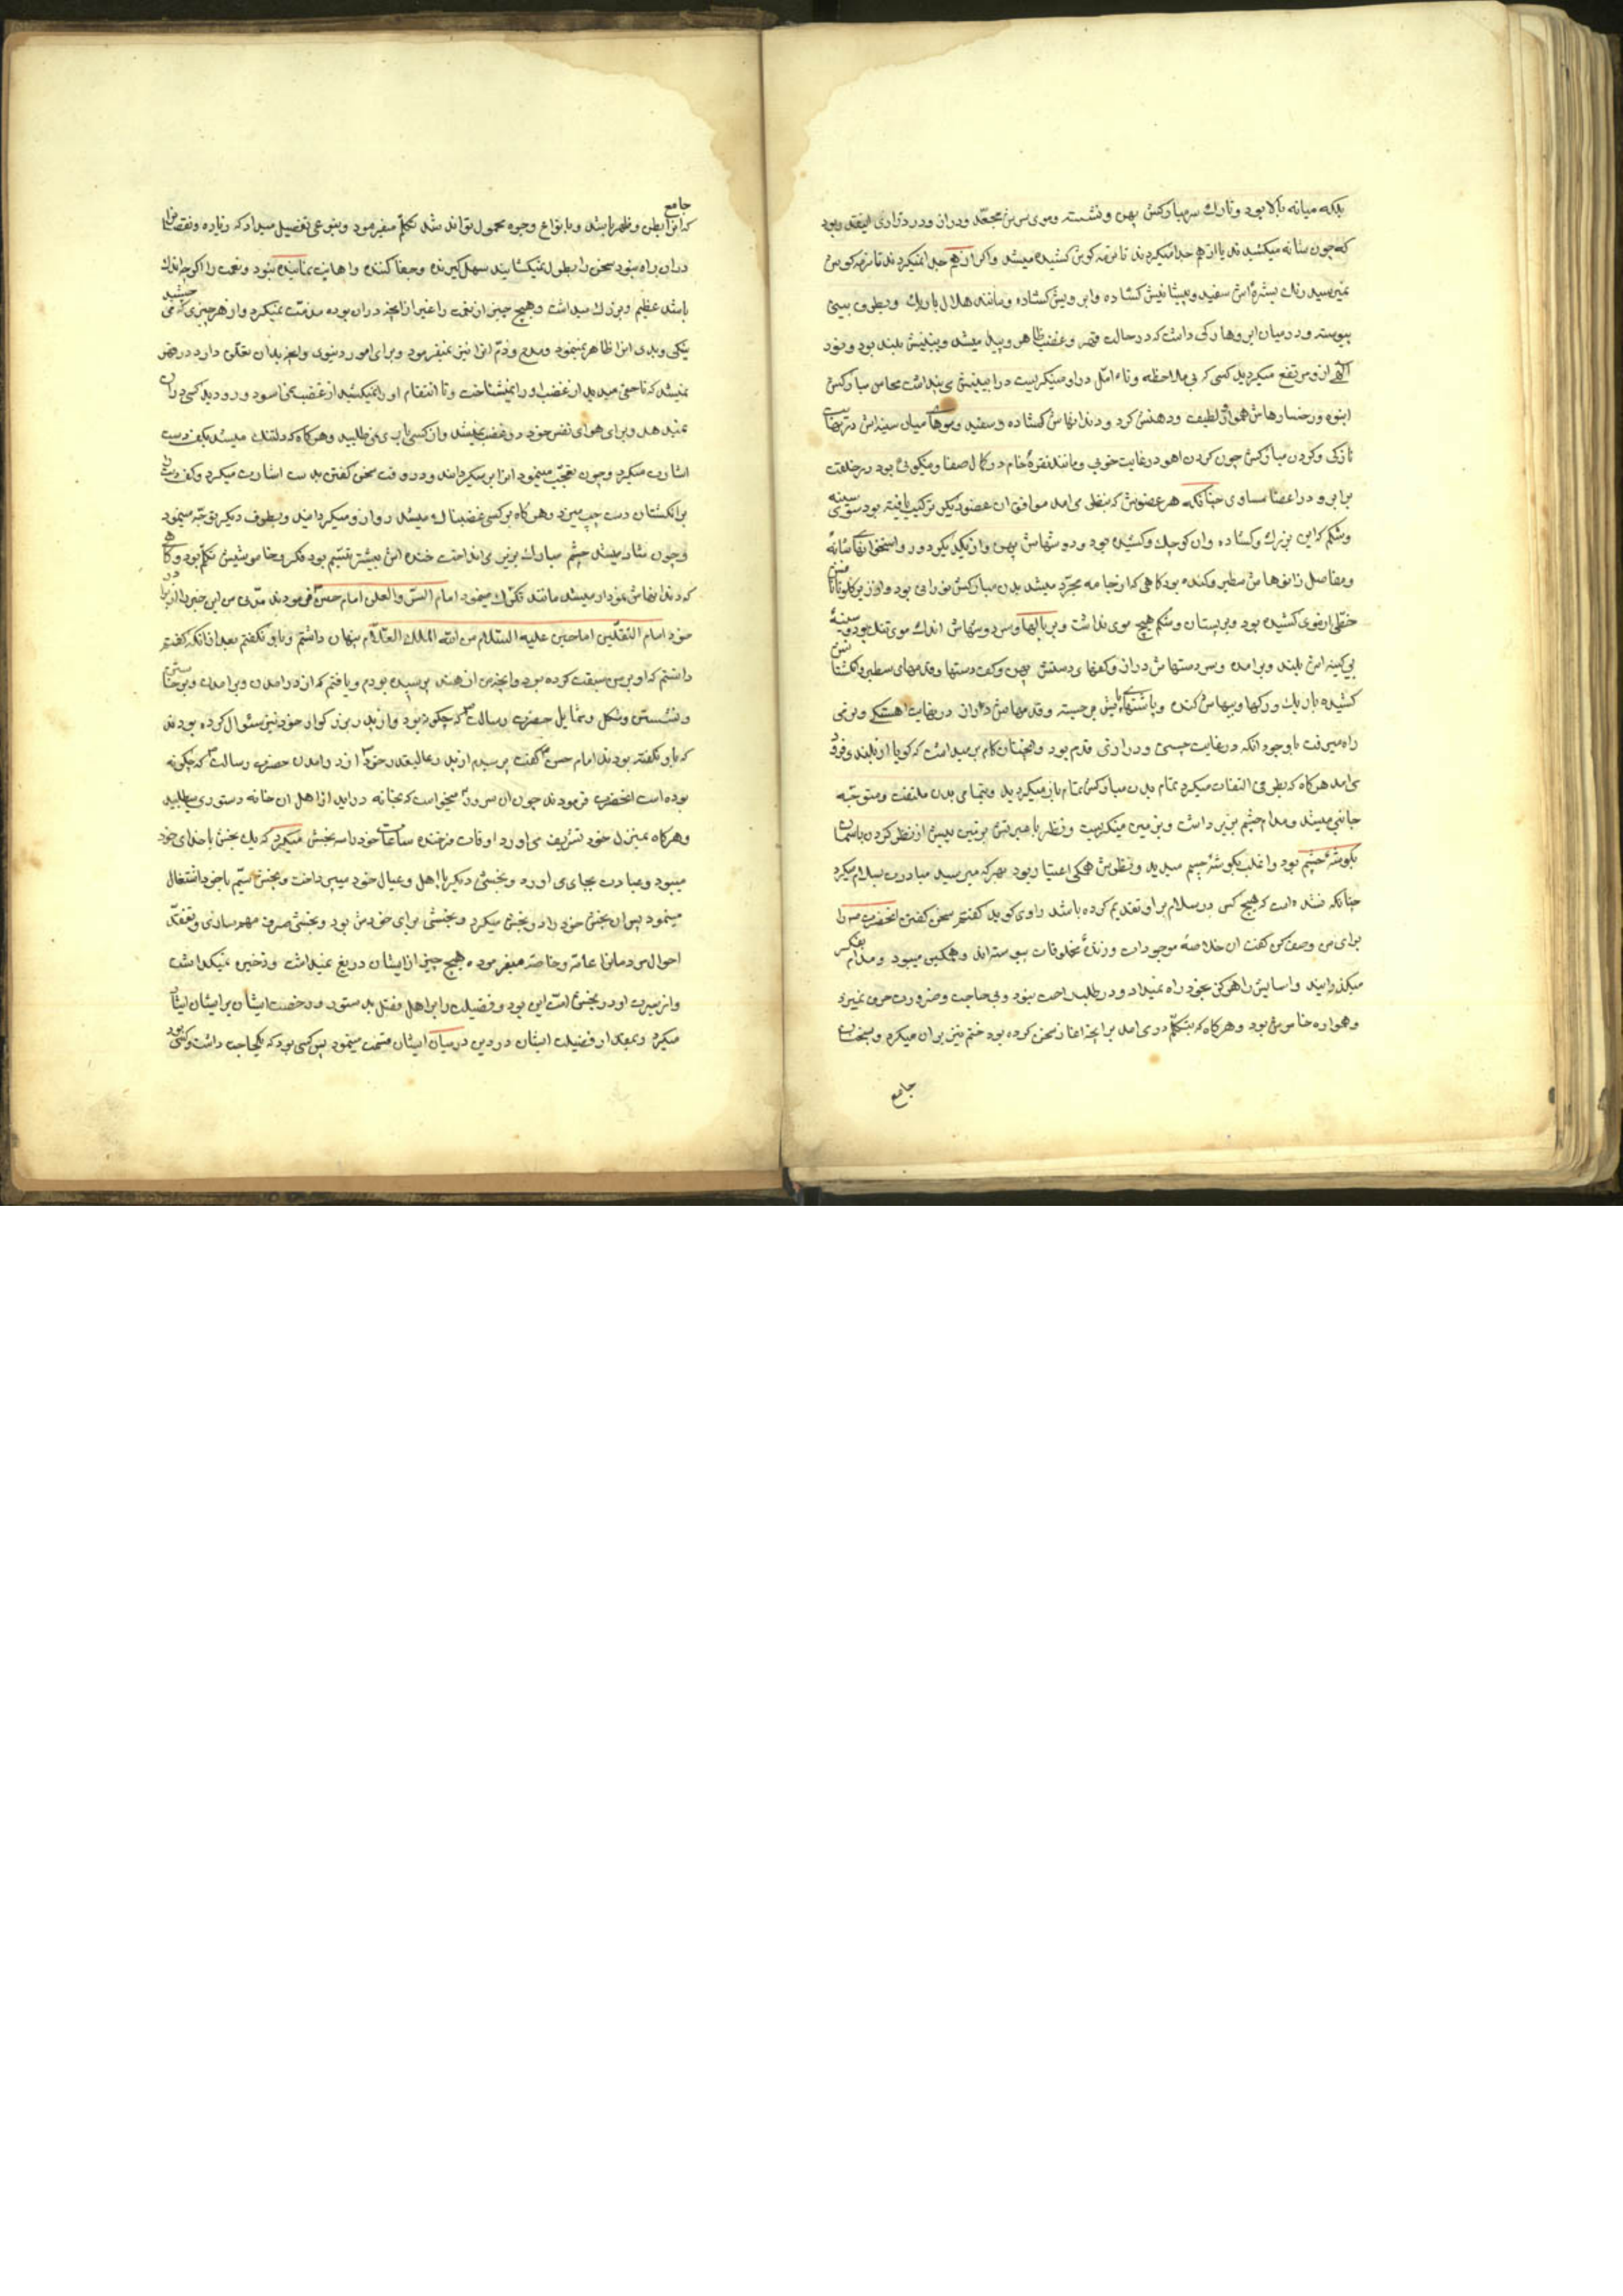 بلکه میانه بالا بود و تارک سر مبارکش پهن و نشسته و موی سرش مجعد و دراز و در درازی اینقدر بود
که چون شانه میکشیدند یا از هم جدا میکردند تا نرمه کوش کشیده میشد و اکر از هم جدا نمیکردند تا نرمه کوش
نمیرسید رنک بشرهٔ اش سفید و پیشانیش کشاده و ابرویش کشاده و مانند هلال باریک و بطرف بینی
پیوسته و در میان ابروها رکی داشت که در حالت قهر و غضب ظاهر و پیدا میشد و بینیش بلند بود و نور
الهی از و مرتفع میکردید کسی که بی ملاحظه و تاءمل در او مینکریست درا بینیش می پنداشت محاسن مبارکش
انبوه و رخسارهاش هموار لطیف و دهنش کرد و دندانهاش کشاده و سفید و موهای میان سینه اش
نازکی و کردن مبارکش چون کردن اهو در غایت خوبی و مانند نقرهٔ خام در کمال صفا و نیکوئی بود در خلقت
برابر و در اعضا مساوی چنانکه هر عضویش که بنظر می امد موافق ان عضو دیکر ترکیب یافته بود سینه
و شکم کرامی بزرک و کشاده وان کوچک و کشیده بود و دوشهاش پهن و از یکدیکر دور و استخوانهای شانهٔ
و مفاصل زانوهاش سطبر و کنده بود کاهی که از جامه مجرد میشد بدن مبارکش نورانی بود و از زیر کلو تا ناف
خطی از موی کشیده بود و بر پستان و شکم هیچ موی نداشت و بر بالها و سر دوشهاش اندک موی تنک بود و سینهٔ
بی کینه اش بلند و برامده و سر دستهاش دراز و کفهای دستش پهن و کف دستها و قدمهای سطبر و انکشتانش
کشیده باریک و رکها و پیهاش کنده و پاشنهای پایش برجسته و قدمهاش دراز در نهایت اهستکی و نرمی
راه میرفت با وجود انکه در نهایت چستی و درازی قدم بود و انچنان کام بر میداشت که کویا از بلند فرود
می امد هرکاه که بطرفی التفات میکرد تمام بدن مبارکش تمام باز میکردید و بتمامی بدن ملتفت و متوجه
جانبی میشد و مدام چشم بزیر داشت و بزمین مینکریست و نظر باهیبتش بر زمین بیش از نظر کردن باسمان
بکوشهٔ چشم بود و اغلب بکوشهٔ چشم میدید و نظرش همکی اعتبار بود بهر که میرسید مبادرت بسلام میکرد
چنانکه نشده است که هیچ کس در سلام بر او تقدیم کرده باشد راوی کوید کفتم سخن کفتن انحضرت را
برای من وصف کن کفت ان خلاصهٔ موجودات و زبدهٔ مخلوقات پیوسته اندوهمکین میبود و مدام بفکر
میکذرانید و اسایش را هرکز بخود راه نمیداد و در طلب راحت نبود و بی حاجت و ضرورت حرف نمیزد
و همواره خاموش بود و هرکاه که بتکلم در می امد بر انچه اغاز سخن کرده بود ختم نیز بر ان میکرد و بسخنان
جامع
جامع
که انرا بطن و ظهر باشد و بانواع وجوه محمول تواند شد تکلم میفرمود و بنوعی تفصیل میداد که زیاده و نقصان را
دران راه نبود سخن را بطول نمیکشانید سهل کیرنده و جفا کننده و اهانت نماینده نبود و نعمت را اکرچه اندک
باشد عظیم و بزرک میداشت و هیچ چیز از نعمت را غیر از انچه دران بوده مذمت نمیکرد و از هر چیزی که می چشید
نیکی و بدی انرا ظاهر نمینمود و مدح و ذم انرا نیز نمیفرمود و برای امور دنیوی و انچه بدان تعلق دارد در قهر
نمیشد که تا حق میدید از غضب او را نمیشناخت و تا انتقام او را نمیکشید از غضب نمی اسود و رو دید کسی دران
نمیدهد و برای هوای نفس خود در غضب نمیشد و از کسی یاری نمی طلبید و هرکاه که دلتنک میشد بکف دست
اشارت میکرد و چون تعجب مینمود انرا برمیکردانید و در وقت سخن کفتن بدست اشارت میکرد و کف دست را
بر انکشتان دست چپ میزد و هرکاه بر کسی غضبناک میشد رو از و میکردانید و بطرف دیکر توجه مینمود
و چون شاد میشد چشم مبارک بزیر می انداخت خنده اش بیشتر تبسم بود فکر و خاموشیش تکلم بود و کاهی
که دندانهاش نمودار میشد مانند تکرک مینمود امام السر و العلن امام حسن فرمودند مدتی من این خبر را از برادر
خود امام الثقلین امام حسین علیه السلام من الله الملک العلام پنهان داشتم و باو نکفتم بعد از انکه کفتم
دانستم که او بر من سبقت کرده بود و انچه من از هند پرسیده بودم و یافتم که از درامدن و برامدن و برخاستن
و نشستن و شکل و شمایل حضرت رسالت که چکونه بود و از پدر بزرکوار خود نیز سئوال کرده بودند
که باو نکفته بودند امام حسن کفت پرسیدم از پدر عالیقدر خود از درامدن حضرت رسالت که چکونه
بوده است انحضرت فرمودند چون ان سرور میخواست که بخانه دراید از اهل ان خانه دستوری میطلبید
و هرکاه بمنزل خود تشریف می اورد اوقات فرخنده ساعات خود را سه بخش میکرد که یک بخش با خدای خود
میبود و عبادت بجای می اورد و بخشی دیکر با اهل و عیال خود میپرداخت و بخش سیم باخود اشتغال
مینمود پس ان بخش خود را دو بخش میکرد و بخشی برای خودش بود و بخشی صرف مهم سازی و تفقد
احوال مردمان از عامه و خاصه میفرمود و هیچ چیز از ایشان دریغ نمیداشت و ذخیره نمیکذاشت
و از سیرت او در بخش امت این بود و فضیلت را بر اهل فضل بدستور و رخصت ایشان بر ایشان ایثار
میکرد و بمقدار فضیلت ایشان در دین در میان ایشان قسمت مینمود پس کسی بود که یک حاجت داشت و کسی بود